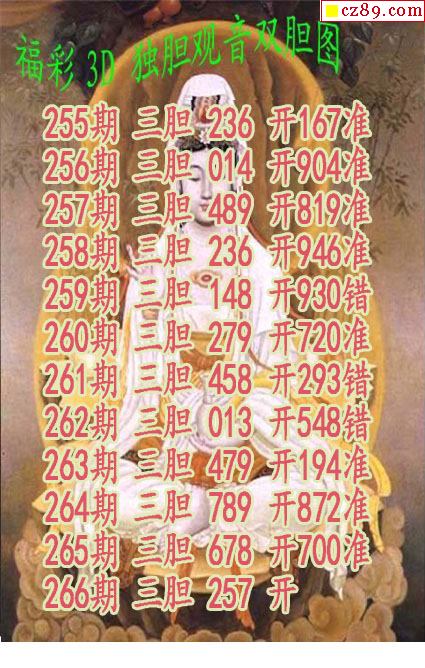 cz89.com
福彩 3D 独胆观音双胆图
255期 三胆 236 开167准
256期 三胆 014 开904准
257期 三胆 489 开819准
258期 三胆 236 开946准
259期 三胆 148 开930错
260期 三胆 279 开720准
261期 三胆 458 开293错
262期 三胆 013 开548错
263期 三胆 479 开194准
264期 三胆 789 开872准
265期 三胆 678 开700准
266期 三胆 257 开